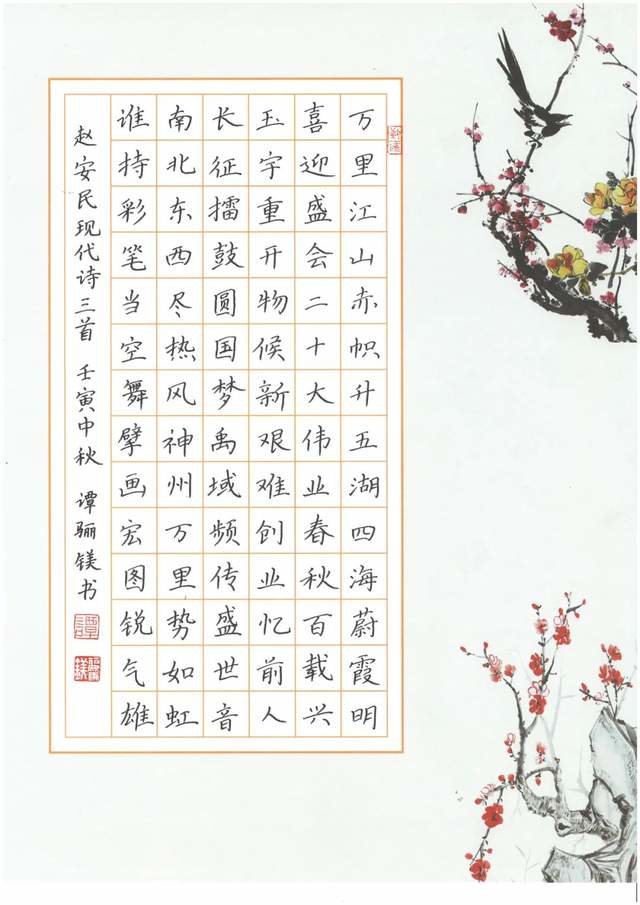 万里江山赤帜升五湖四海蔚霞明
喜迎盛会二十大伟业春秋百载兴
玉宇重开物候新艰难创业忆前人
长征擂鼓圆国梦禹域频传盛世音
南北东西尽热风神州万里势如虹
谁持彩笔当空舞擘画宏图锐气雄
赵安民现代诗三首 壬寅中秋 谭骊镁书